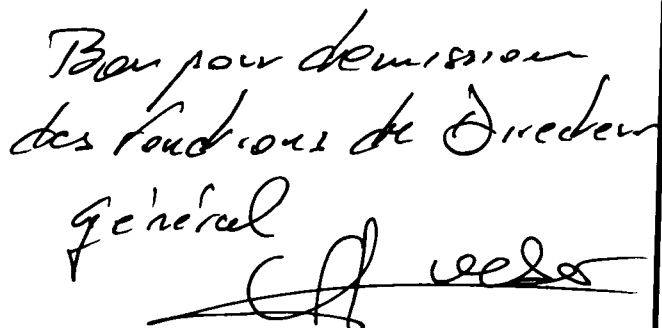 Bon pour démission
des fonctions de Directeur
général